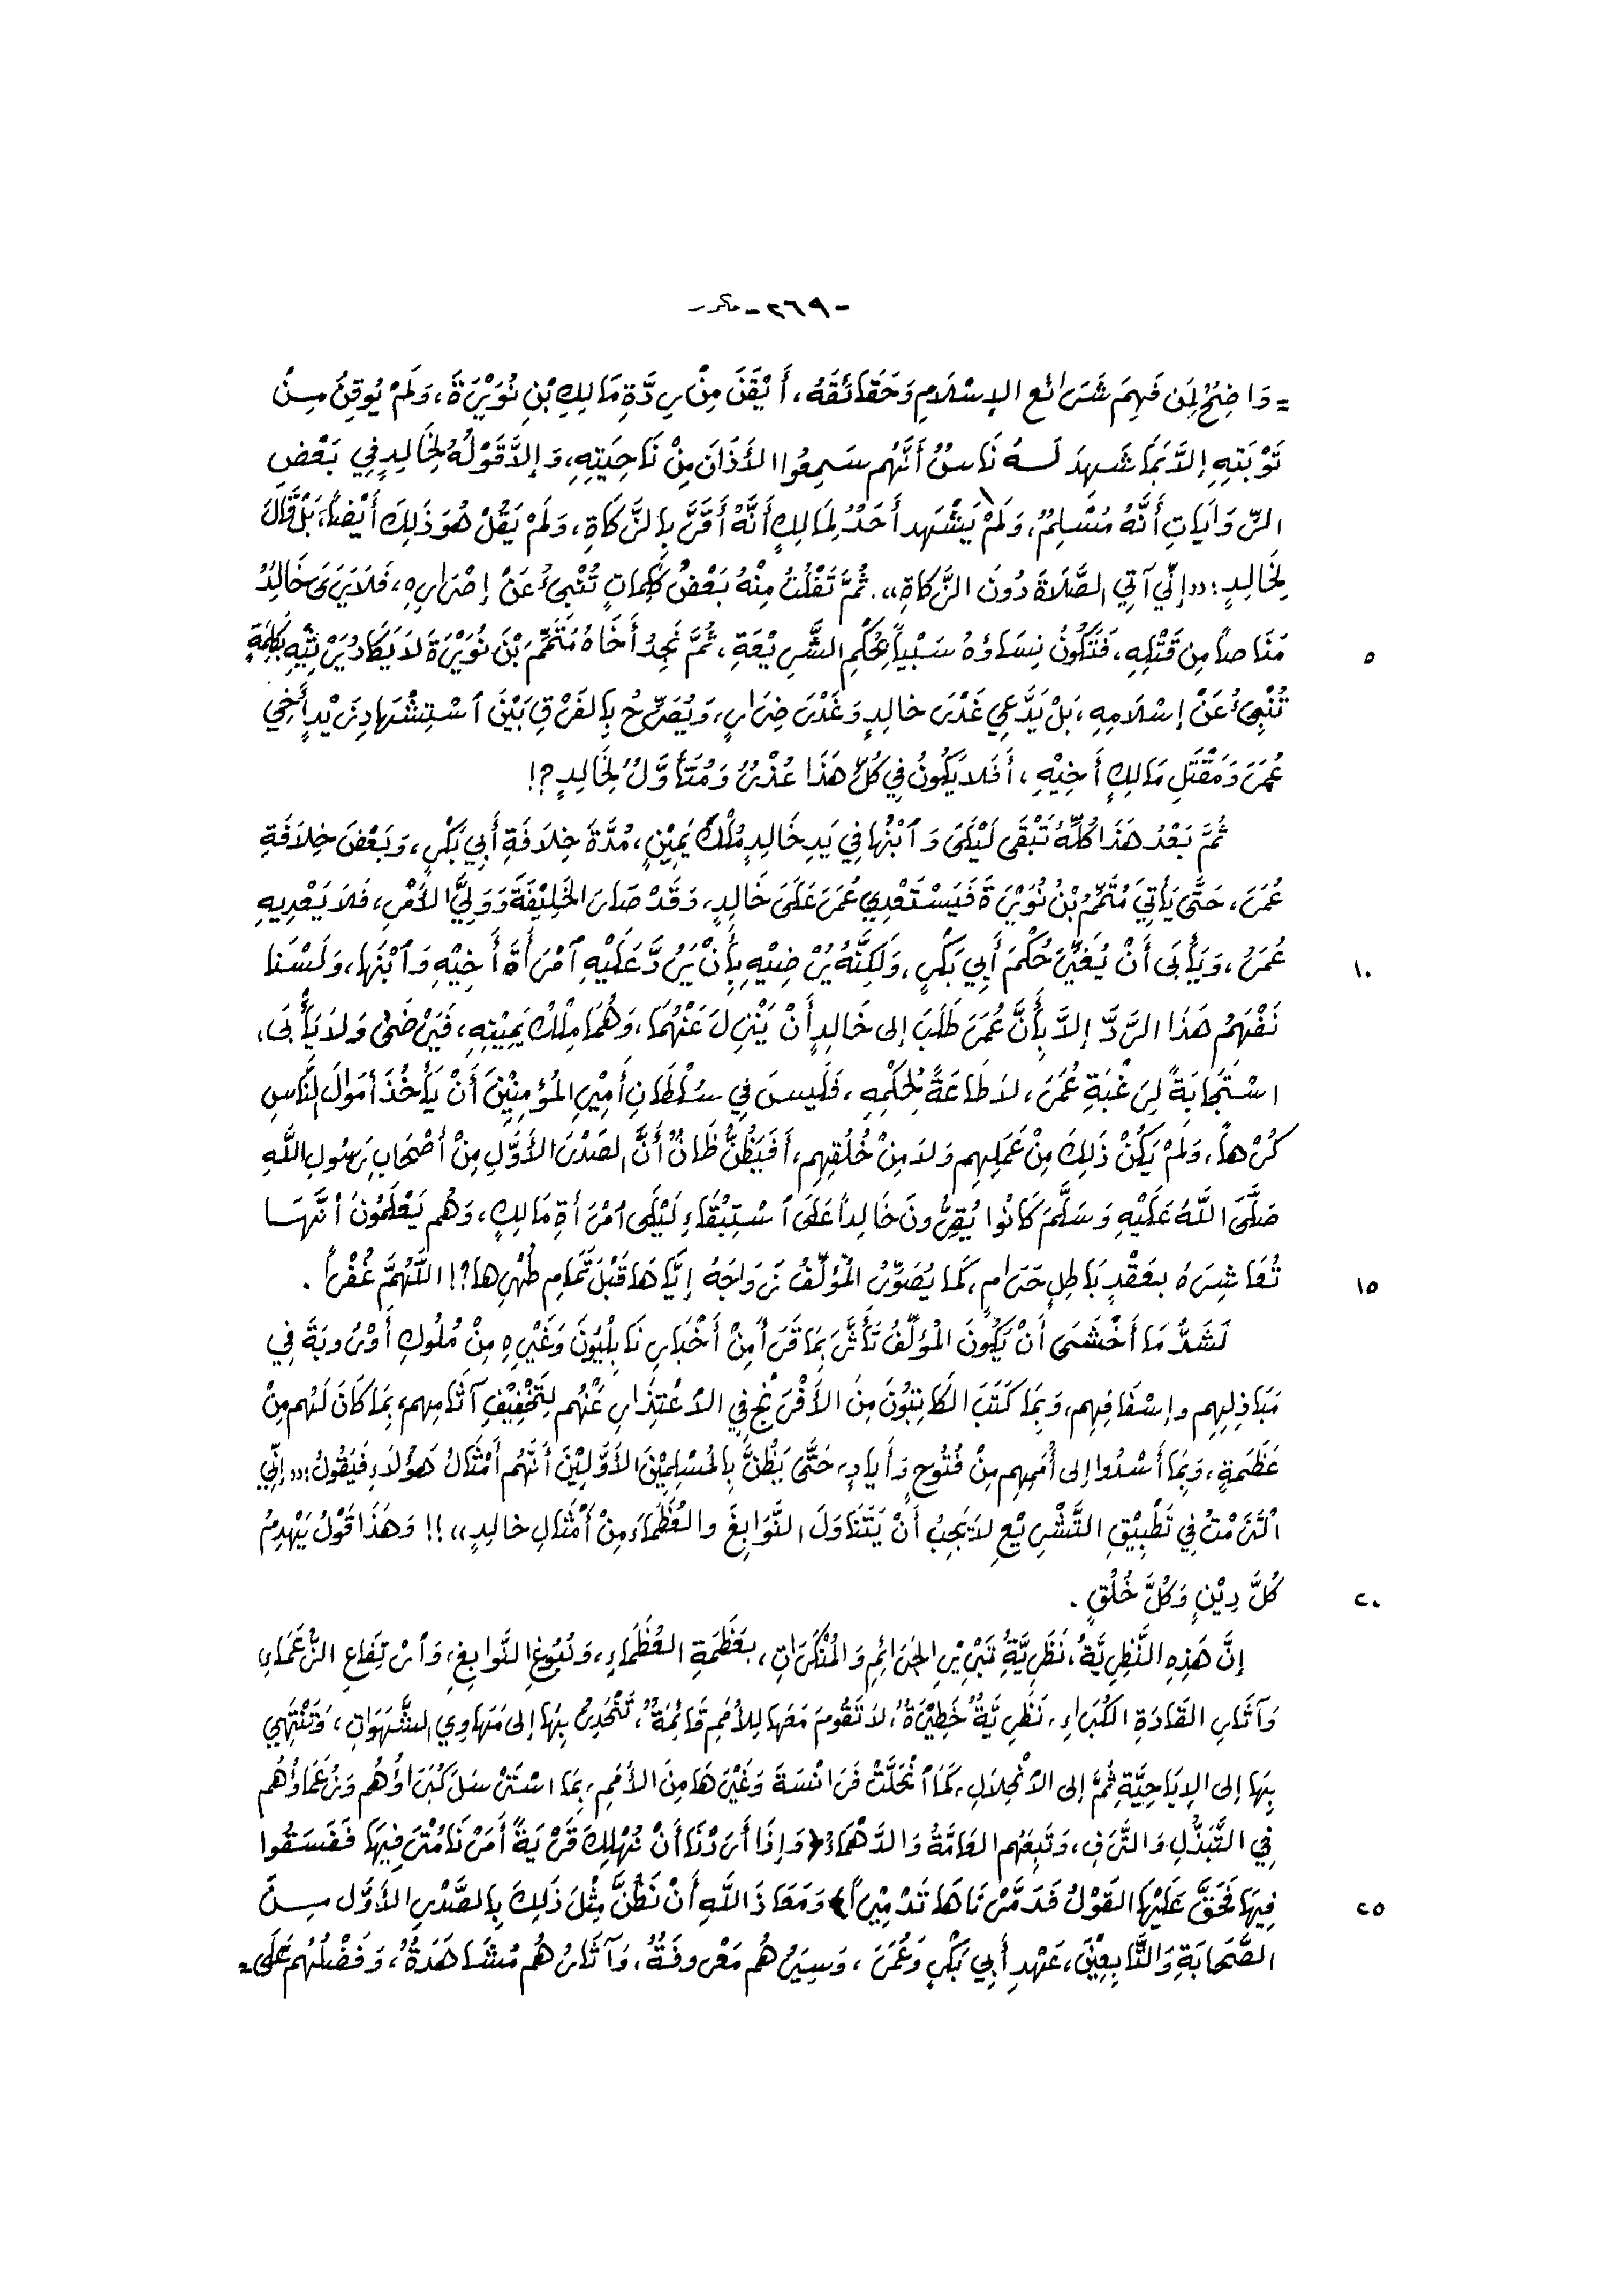 -٢٦٩- مكرر
= وَاضِحٌ لِمَن فَهِمَ شَرَائع الإسْلَامِ وَحَقَائقَهُ، أَيْقَنَ مِنْ رِدَّةِ مَالِكِ بْنِ نُوَيْرَةَ، وَلَمْ يُوقِنْ مِنْ
تَوْبَتِهِ إلاَّ بَمَا شَهِدَ لَهُ نَاسٌ أَنَّهُم سَمِعُوا الأَذَانَ مِنْ نَاحِيَتِهِ، وَإلاَّ قَوْلُهُ لِخَالِدٍ فِي بَعْضِ
الرِّوَايَاتِ أَنَّهُ مُسْلِمٌ، وَلَمْ يَشْهَد أَحَدٌ لِمَالِكٍ أَنَّهُ أَقَرَّ بِالزَّكَاةِ، وَلَمْ يَقُلْ هُوَ ذَلِكَ أَيْضاً، بَلْ قَالَ
لِخَالِدٍ: «إنِّي آتِي الصَّلَاةَ دُونَ الزَّكَاةِ». ثُمَّ تَفْلُتُ مِنْهُ بَعْضُ كَلِمَاتٍ تُنْبِىُٔ عَنْ إصْرَارِهِ، فَلَا يَرَى خَالِدٌ
٥ مَنَاصاً مِن قَتْلِهِ، فَتَكُونُ نِسَاؤهُ سَبْياً بِحُكْمِ الشَّرِيْعَةِ، ثُمَّ نَجِدُ أَخَاهُ مُتَمِّمَ بْنَ نُوَيْرَةَ لاَ يَكَادُ يَرْثِيْهِ بِكَلِمَةٍ
تُنْبِىُٔ عَنْ إسْلَامِهِ، بَلْ يَدَّعِي غَدْرَ خالِدٍ وَغَدْرَ ضِرَارٍ، وَيُصَرِّحُ بِالفَرْقِ بَيْنَ ٱسْتِشْهَادِ زَيْدٍ أَخِي
عُمَرَ وَمَقْتَلِ مَالِكٍ أَخِيْهِ، أَفَلاَ يَكُونُ فِي كُلِّ هَذَا عُذْرٌ وَمُتَأَوَّلٌ لِخَالِدٍ؟!
ثُمَّ بَعْدُ هَذَا كُلِّهُ تَبْقَى لَيْلَى وَٱبْنُهَا فِي يَدِ خَالِدٍ مُلْكَ يَمِيْنٍ، مُدَّةَ خِلَافَةِ أَبِي بَكْرٍ، وَبَعْضَ خِلاَفَةِ
عُمَرَ، حَتَّى يَأتِيَ مُتَمِّمُ بْنُ نُوَيْرَةَ فَيَسْتَعْدِيَ عُمَرَ عَلَى خَالِدٍ، وَقَدْ صَارَ الخَلِيْفَةَ وَوَلِيَّ الأَمْرِ، فَلاَ يَعْدِيهِ
١٠ عُمَرُ، وَيَأْبَى أَنْ يُغَيِّرَ حُكْمَ أَبِي بَكْرٍ، وَلَكِنَّهُ يُرْضِيْهِ بِأَنْ يَرُدَّ عَلَيْهِ ٱمْرَأَةَ أَخِيْهِ وَٱبْنَهَا، وَلَسْنَا
نَفْهَمُ هَذَا الرَّدَّ إلاَّ بِأَنَّ عُمَرَ طَلَبَ إلى خَالِدٍ أَنْ يَنْزِلَ عَنْهُمَا، وَهُمَا مِلْكُ يَمِيْنِهِ، فَيَرْضَىٰ وَلاَ يَأْبَى،
اسْتَجَابَةً لِرَغْبَةِ عُمَرَ، لاَ طَاعَةً لِحُكْمِهِ، فَلَيسَ فِي سُلْطَانِ أَمِيْرِ المُؤْمِنِيْنَ أَنْ يَأْخُذَ أَمْوَالَ النَّاسِ
كُرْهاً، وَلَمْ يَكُنْ ذَلِكَ مِنْ عَمَلِهِم وَلاَ مِنْ خُلُقِهِم، أَفَيَظُنُّ ظَانٌّ أَنَّ الصَدْرَ الأَوَّلِ مِنْ أَصْحَابِ رَسُولِ اللَّهِ
صَلَّى اللَّهُ عَلَيْهِ وَسَلَّمَ كَانُوا يُقِرُّونَ خَالِداً عَلَى ٱسْتِبْقَاءِ لَيْلَى ٱمْرَأَةِ مَالِكٍ، وَهُم يَعْلَمُونَ أنَّهَا
١٥ تُعَاشِرَهُ بِعَقْدٍ بَاطِلٍ حَرَامٍ، كَمَا يُصَوِّرُ المُؤلِّفُ زَوَاجَهُ إيَّاهَا قَبْلَ تَمَامِ طُهْرِهَا؟! اللَّهُمَّ غُفْراً.
لَشَدُّ مَا أَخْشَى أَنْ يَكُونَ المُؤلِّفُ تَأَثَّرَ بِمَا قَرَأَ مِنْ أَخْبَارِ نَابِلْيُونَ وَغَيْرِهِ مِنْ مُلُوكِ أَوْرُوبَةَ فِي
مَبَاذِلِهِم وإسْفَافِهِم، وَبِمَا كَتَبَ الكَاتِبُونَ مِنَ الأَفْرَنْجِ فِي الاْعْتِذَارِ عَنْهُم لِتَخْفِيْفِ آثَامِهِم، بِمَا كَانَ لَهُم مِنْ
عَظَمَةٍ، وَبِمَا أَسْدُوا إلى أُمَمِهِم مِنْ فُتُوحٍ وَأَيَادٍ، حَتَّى يَظُنَّ بِالمُسْلِمِيْنَ الأَوَّلِيْنَ أنَّهُم أَمْثَالُ هَؤُلَاءِ فَيَقُولُ: «إنِّي
الْتَزمْتُ فِي تَطْبِيْقِ التَّشْرِيْعِ لاَ يَجِبُ أَنْ يَتَنَاوَلَ النَّوَابِغَ والعُظَمَاءَ مِنْ أَمْثَالِ خالِدٍ»!! وَهَذَا قَوْلٌ يَهْدِمُ
٢٠ كُلَّ دِيْنٍ وَكُلَّ خُلُقٍ.
إنَّ هَذِهِ النَّظَرِيَّةُ، نَظَرِيَّةُ تَبْرِيْرِ الجَرَائِمِ وَالمُنْكَرَاتِ، بِعَظَمَةِ العُظَمَاءِ، وَنُبُوغِ النَّوابِغِ، وَٱرْتِفَاعِ الزُّعَمَاءِ
وَآثَارِ القَادَةِ الكُبَرَاءِ، نَظَرِيَّةٌ خَطِيْرَةٌ، لاَ تَقُومَ مَعَهَا لِلأُمَمِ قَائِمَةٌ، تَنْحَدِرُ بِهَا إلى مَهَاوِي الشَّهَوَاتِ، وَتَنْتَهِي
بِهَا إلى الإِبَاحِيَّةِ ثُمَّ إلى الاْنْحِلَالِ، كَمَا ٱنْحَلَّتْ فَرَانْسَةَ وَغَيْرَهَا مِنَ الأُمَمِ، بِمَا اسْتَرْسَلَ كُبَرَاؤُهُم وَزُعَمَاؤُهُم
فِي التَّبَذُّلِ وَالتَّرَفِ، وَتَبِعَهُم العَامَّةُ وَالدَّهْمَاءُ ﴿وَإِذَا أَرَدْنَا أَنْ نُهْلِكَ قَرْيَةً أَمَرْنَا مُتْرَفِيْهَا فَفَسَقُوا
٢٥ فِيهَا فَحَقَّ عَلَيْهَا القَوْلُ فَدَمَّرْنَاهَا تَدْمِيْراً﴾ وَمَعَاذَ اللَّهِ أَنْ نَظُنَّ مِثْلَ ذَلِكَ بِالصَّدْرِ الأَوَّلِ مِنَ
الصَّحَابَةِ وَالتَّابِعِيْنَ، عَهْدِ أَبِي بَكْرٍ وَعُمَرَ، وَسِيَرُهُم مَعْرُوفَةٌ، وَآثَارُهُم مُشَاهَدَةٌ، وَفَضْلُهُم عَلَى =